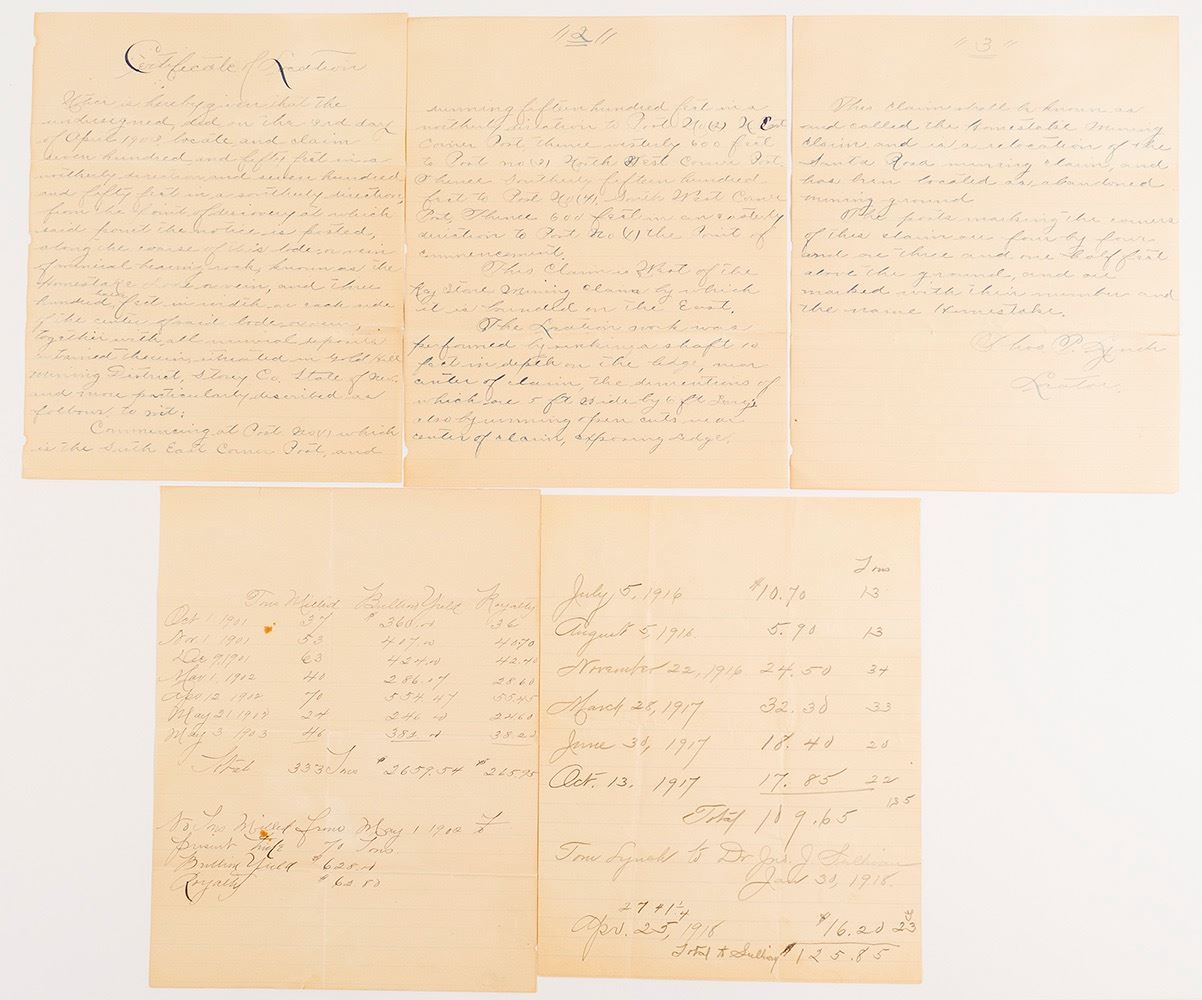 Certificate of Location
Notice is hereby given that the
undersigned, did on the 3rd day
of April 1903, locate and claim
seven hundred and fifty feet in a
northerly direction and seven hundred
and fifty feet in a southerly direction,
from the point of discovery at which
said point the notice is posted,
along the course of this lode or vein
of mineral-bearing rock, known as the
Homestake Lode or vein, and three
hundred feet in width, on each side
of the center of said lode or vein,
together with all mineral deposits
contained therein, situated in Gold Hill
Mining District, Storey Co. State of Nev.
and more particularly described as
follows, to wit:
Commencing at Post No (1) which
is the South East Corner Post, and
"2"
running fifteen hundred feet in a
northerly direction to Post No (2) N East
Corner Post, thence westerly 600 feet
to Post no (3) North West Corner Post,
Thence Southerly fifteen hundred
feet to Post No (4), South West Corner
Post, Thence 600 feet in an easterly
direction to Post No (1) the Point of
commencement.
This Claim is West of the
Key Stone Mining Claim by which
it is bounded on the East.
The Location work was
performed by sinking a shaft 10
feet in depth on the ledge, near
center of claim, the dimentions of
which are 5 ft wide by 6 ft long,
also by running open cuts near
center of claim, exposing ledge.
"3"
This claim shall be known as
and called the Homestake Mining
Claim, and is a relocation of the
Santa Road mining claim, and
has been located as abandoned
mining ground
The posts marking the corners
of this claim are four by four
and are three and one half feet
above the ground, and are
marked with their number and
the name Homestake.
Thos P. Lynch
Locator.
Tons Milled Bullion Yield Royalty
Oct 1 1901 37 $360.00 36
Nov. 1 1901 53 407.00 40.70
Dec 9, 1901 63 424.00 42.40
Mar 1, 1902 40 286.07 28.60
Apr. 12, 1902 70 554.47 55.45
May 21 1902 24 246.00 24.60
May 3 1903 46 382.00 38.20
Total 333 Tons $2659.54 $265.95
No Tons Milled from May 1 1902 to
present time 70 Tons
Bullion Yield $628.00
Royalty $62.80
Tons
July 5, 1916 $10.70 13
August 5, 1916 5.90 13
November 22, 1916 24.50 34
March 28, 1917 32.30 33
June 30, 1917 18.40 20
Oct. 13, 1917 17.85 22
135
Total 109.65
Tom Lynch to Dr Jno. J. Sullivan
Jan 30, 1918.
Apr. 25, 1918 $16.20 23
Total to Sullivan $125.85